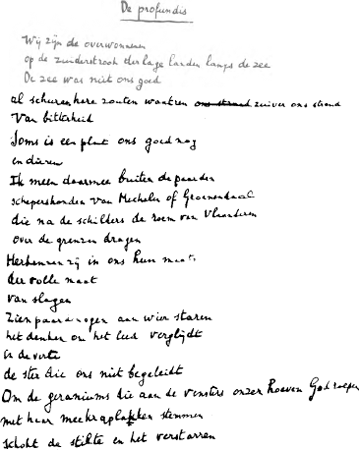 De profundis
Wij zijn de overwonnenen
op de zuiderstrook der lage landen langs de zee
De zee was niet ons goed
al schuren here zouten waatren ons strand zuiver ons strand
Van bitterheid
Soms is een plant ons goed nog
en dieren
Ik meen daarmee buiten de paarden
schepershonden van Mechelen of Groenendaal
die na de schilders de roem van Vlaanderen
over de grenzen dragen
Herkennen zij in ons hun maat
der volle maat
van slagen
Zien paardenogen aan wier staren
het denken en het leed verglijdt
in de verte
de ster die ons niet begeleidt
Om de geraniums die aan de vensters onzer hoeven God roepen
met haar meekraplakken stemmen
schokt de stilte en het verstarren